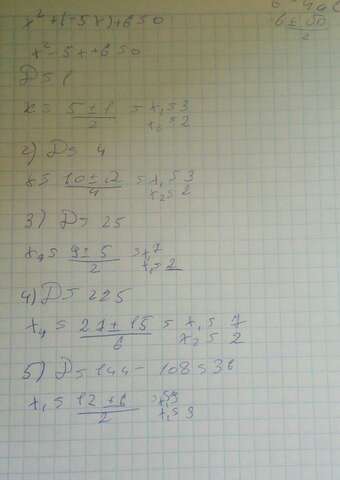 x² + (-5x) + 6 = 0
x² - 5x + 6 = 0
D = 1
x = (5 ± 1)/2 = x₁ = 3
x₂ = 2
2) D = 4
x = (10 ± 2)/4 = x₁ = 3
x₂ = 2
3) D = 25
x₁ = (9 ± 5)/2 = x₁ 7
x₂ = 2
4) D = 225
x₁ = (27 ± 15)/6 = x₁ = 7
x₂ = 2
5) D = 144 - 108 = 36
x₁ = (12 ± 6)/2 = 9
x₂ = 3